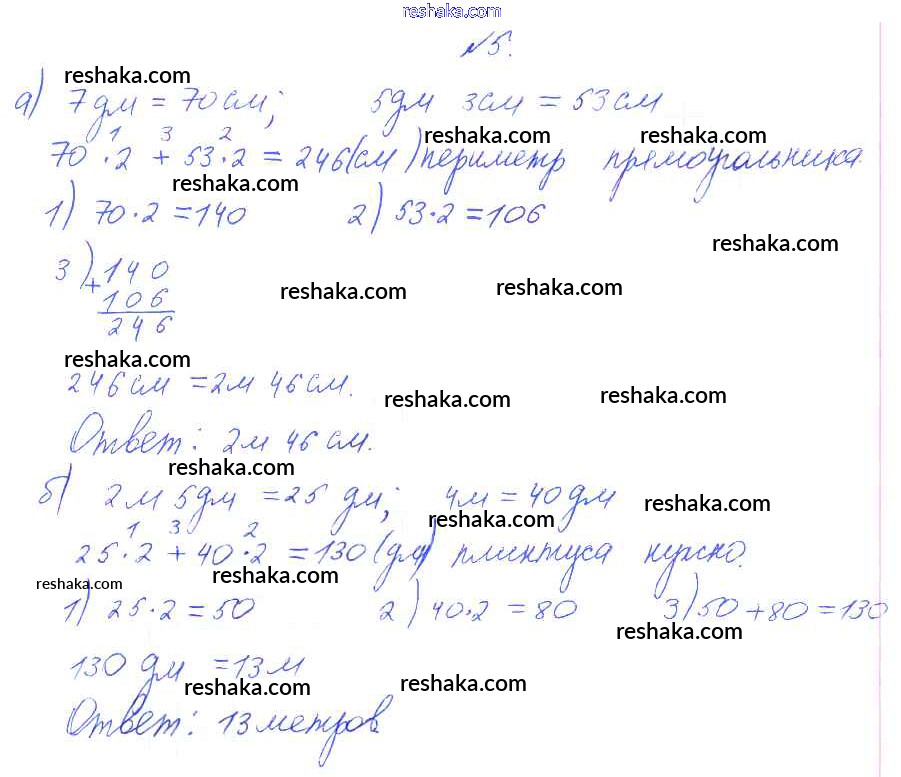 reshaka.com
№5.
reshaka.com
а) 7 дм = 70 см; 5 дм 3 см = 53 см
1 3 2 reshaka.com reshaka.com
70 · 2 + 53 · 2 = 246 (см) периметр прямоугольника.
reshaka.com
1) 70 · 2 = 140 2) 53 · 2 = 106
reshaka.com
3) 140
reshaka.com reshaka.com
+ 106
246
reshaka.com
246 см = 2 м 46 см.
reshaka.com reshaka.com
Ответ: 2 м 46 см.
reshaka.com
б) 2 м 5 дм = 25 дм; 4 м = 40 дм
reshaka.com
1 3 2 reshaka.com
25 · 2 + 40 · 2 = 130 (дм) плинтуса нужно.
reshaka.com reshaka.com
1) 25 · 2 = 50 2) 40 · 2 = 80 3) 50 + 80 = 130
reshaka.com
130 дм = 13 м
reshaka.com reshaka.com
Ответ: 13 метров